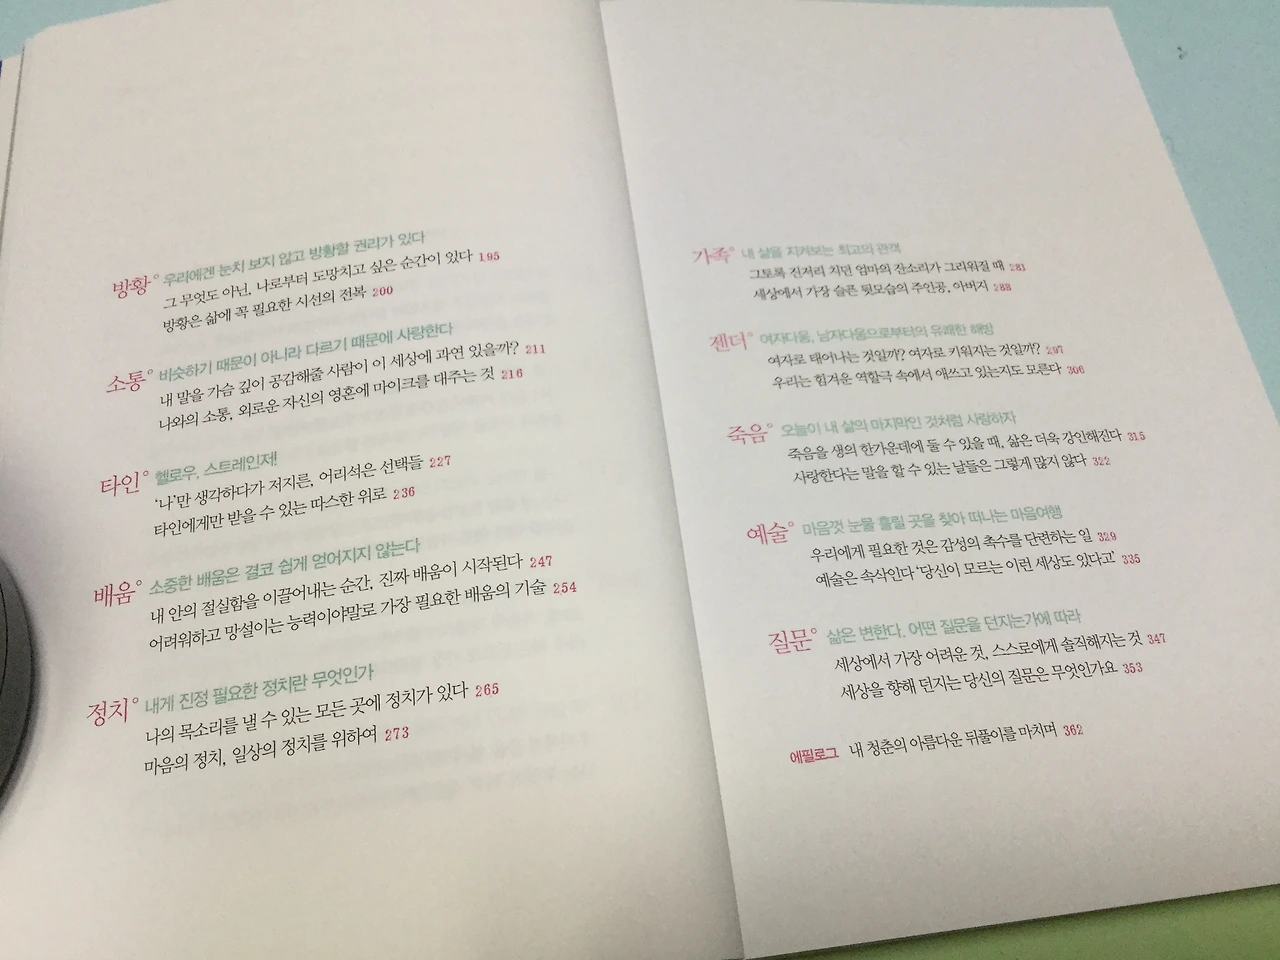 방황° 우리에겐 눈치 보지 않고 방황할 권리가 있다
그 무엇도 아닌, 나로부터 도망치고 싶은 순간이 있다 195
방황은 삶에 꼭 필요한 시선의 전복 200
소통° 비슷하기 때문이 아니라 다르기 때문에 사랑한다
내 말을 가슴 깊이 공감해줄 사람이 이 세상에 과연 있을까? 211
나와의 소통, 외로운 자신의 영혼에 마이크를 대주는 것 216
타인° 헬로우, 스트레인저!
‘나’만 생각하다가 저지른, 어리석은 선택들 227
타인에게만 받을 수 있는 따스한 위로 236
배움° 소중한 배움은 결코 쉽게 얻어지지 않는다
내 안의 절실함을 이끌어내는 순간, 진짜 배움이 시작된다 247
어려워하고 망설이는 능력이야말로 가장 필요한 배움의 기술 254
정치° 내게 진정 필요한 정치란 무엇인가
나의 목소리를 낼 수 있는 모든 곳에 정치가 있다 265
마음의 정치, 일상의 정치를 위하여 273
가족° 내 삶을 지켜보는 최고의 관객
그토록 진저리 치던 엄마의 잔소리가 그리워질 때 281
세상에서 가장 슬픈 뒷모습의 주인공, 아버지 288
젠더° 여자다움, 남자다움으로부터의 유쾌한 해방
여자로 태어나는 것일까? 여자로 키워지는 것일까? 297
우리는 힘겨운 역할극 속에서 애쓰고 있는지도 모른다 306
죽음° 오늘이 내 삶의 마지막인 것처럼 사랑하자
죽음을 생의 한가운데에 둘 수 있을 때, 삶은 더욱 강인해진다 315
사랑한다는 말을 할 수 있는 날들은 그렇게 많지 않다 322
예술° 마음껏 눈물 흘릴 곳을 찾아 떠나는 마음여행
우리에게 필요한 것은 감성의 촉수를 단련하는 일 329
예술은 속삭인다 ‘당신이 모르는 이런 세상도 있다고’ 335
질문° 삶은 변한다. 어떤 질문을 던지는가에 따라
세상에서 가장 어려운 것, 스스로에게 솔직해지는 것 347
세상을 향해 던지는 당신의 질문은 무엇인가요 353
에필로그 내 청춘의 아름다운 뒤풀이를 마치며 362